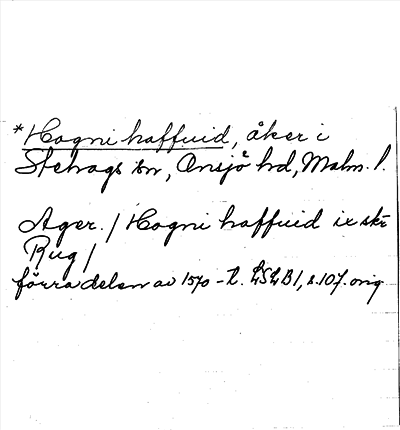 *Hogni haffuid, åker i
Stehags sn, Onsjö hd, Malm. l.
Ager. / Hogni haffuid ix skr
Rug /
förra delen av 1570-t. LSLB 1, s. 107. orig